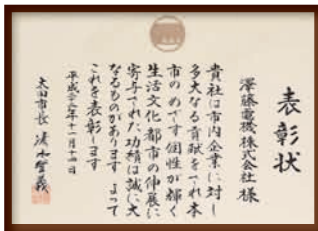 表彰状
澤藤電機株式会社 様
貴社は市内企業に対し
多大なる貢献をされ本
市の めざす個性が輝く
生活文化都市の伸展に
寄与された功績は誠に大
なるものがあります よって
これを表彰します
平成二十六年十一月十四日
太田市長 清水聖義